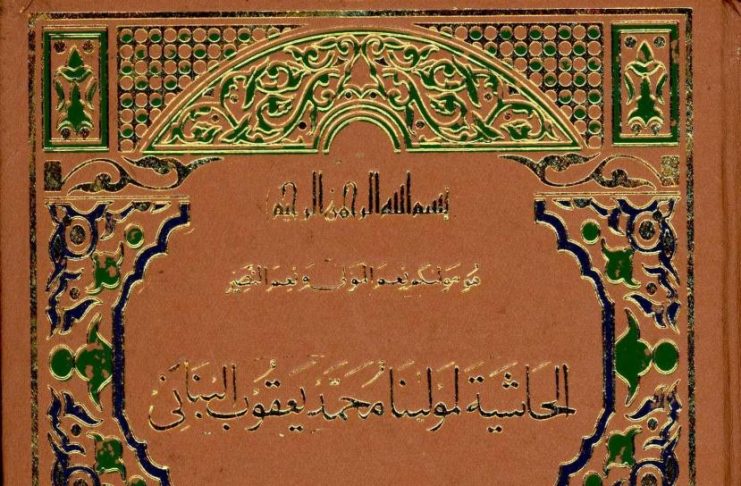 بسم الله الرحمن الرحيم
هو مولىكم نعم المولى و نعم النصير
الحاشية لمولينا محمد يعقوب البنانى